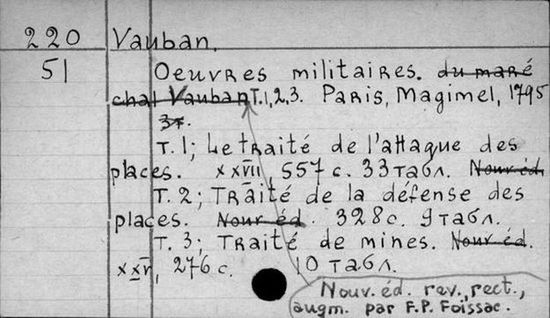 220 Vauban.
51 Oeuvres militaires. du maré
chal Vauban T.1,2,3. Paris, Magimel, 1795
3т.
T. 1; Le traité de l'attaque des
places. xxvii, 557 с. 33 табл. Nouv. éd.
T. 2; Traité de la défense des
places. Nouv. éd. 328 с. 9 табл.
T. 3; Traité de mines. Nouv. éd.
xxv, 276 с. 10 табл.
Nouv. éd. rev., rect.,
augm. par F. P. Foissac.